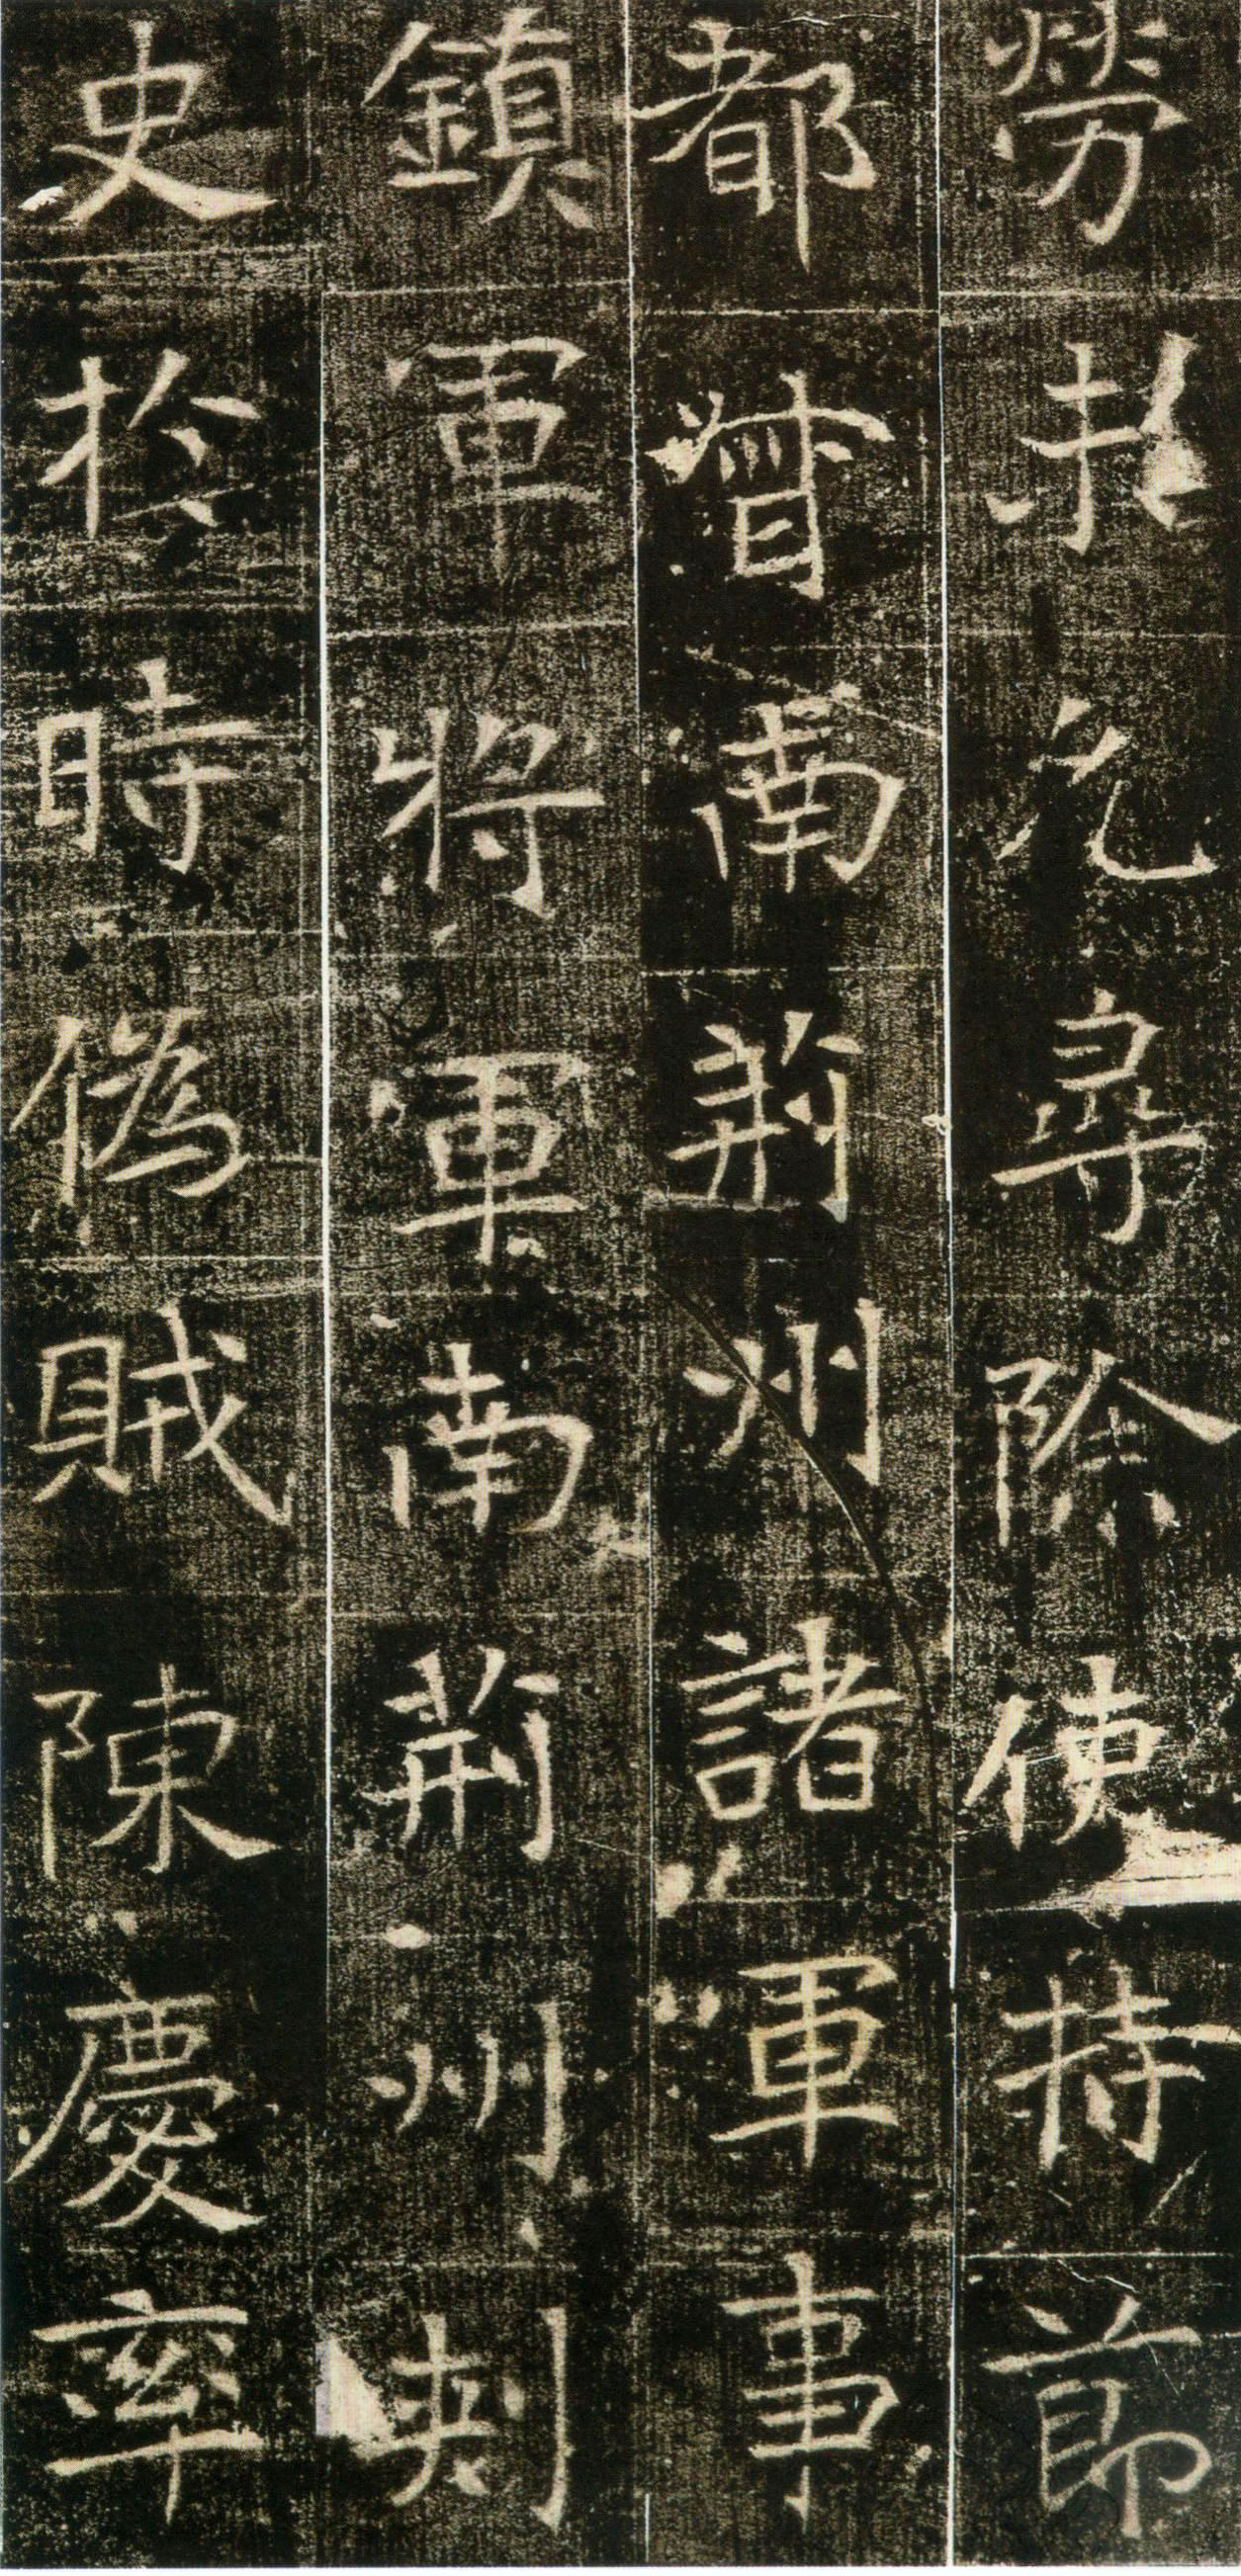 勞允尋除使持節
都督南荊州諸軍事
鎮軍將軍南荊州刾
史於時偽賊陳慶率